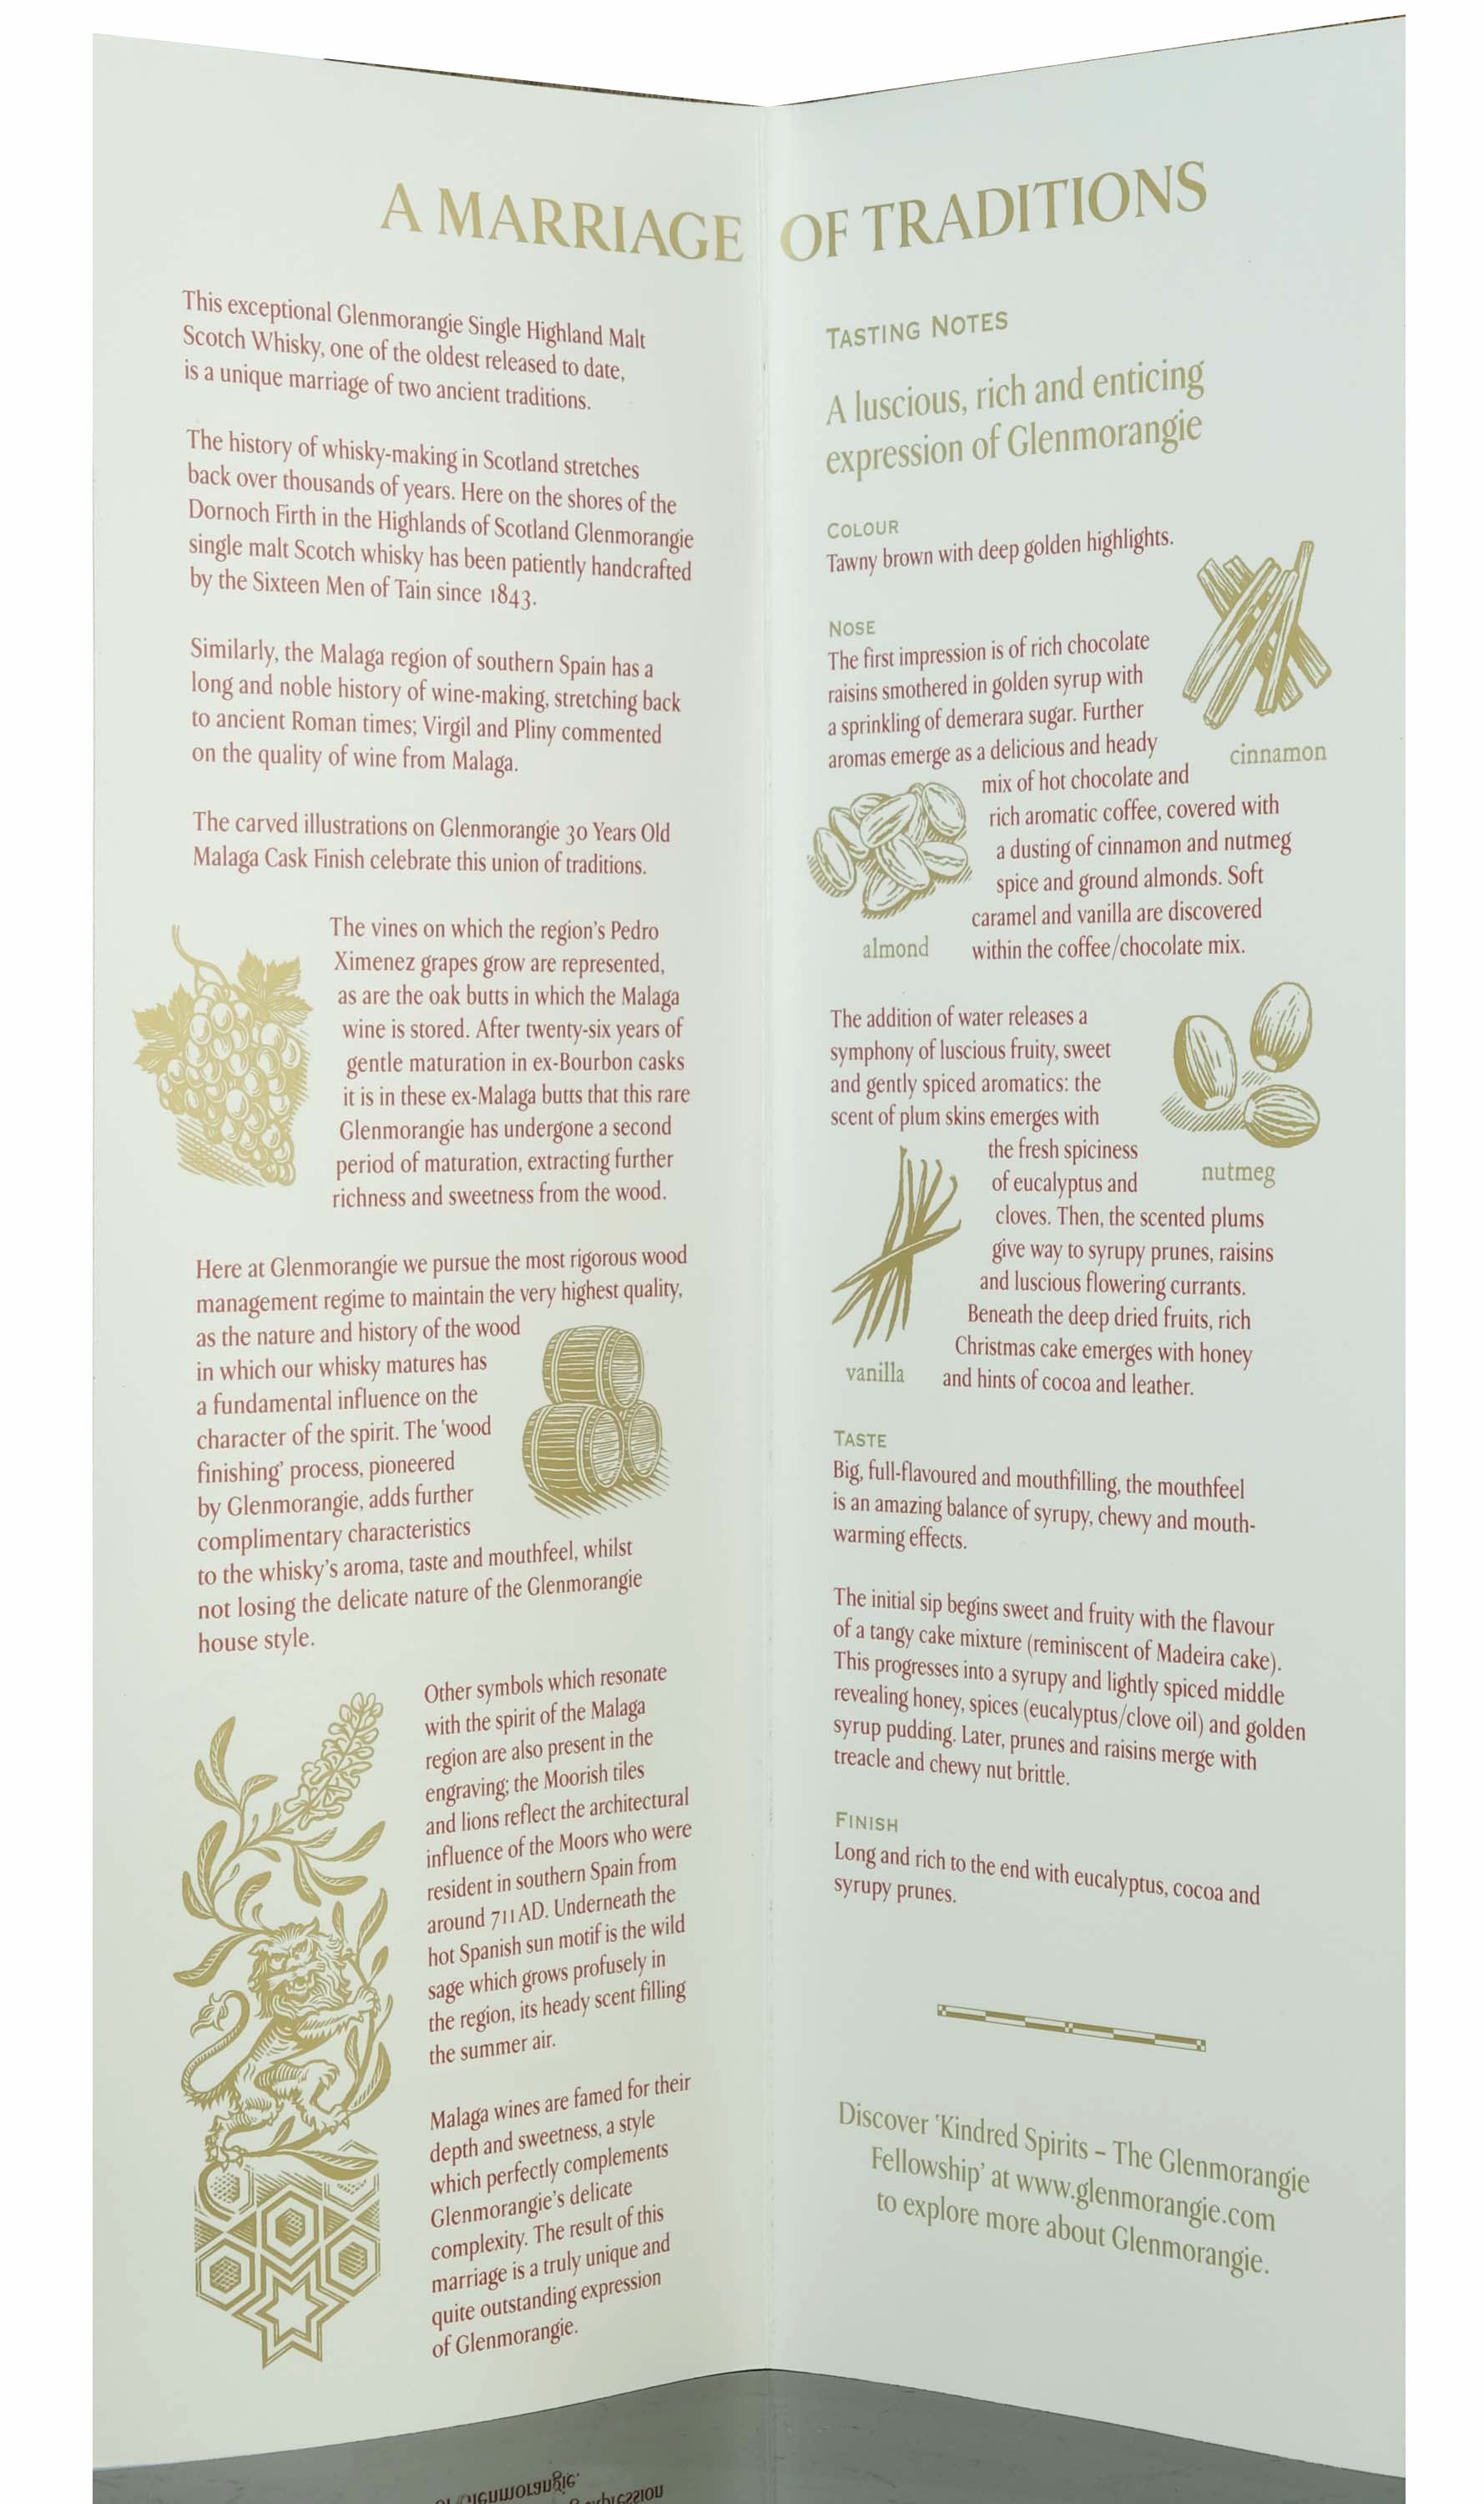 A MARRIAGE OF TRADITIONS
This exceptional Glenmorangie Single Highland Malt
Scotch Whisky, one of the oldest released to date,
is a unique marriage of two ancient traditions.
The history of whisky-making in Scotland stretches
back over thousands of years. Here on the shores of the
Dornoch Firth in the Highlands of Scotland Glenmorangie
single malt Scotch whisky has been patiently handcrafted
by the Sixteen Men of Tain since 1843.
Similarly, the Malaga region of southern Spain has a
long and noble history of wine-making, stretching back
to ancient Roman times; Virgil and Pliny commented
on the quality of wine from Malaga.
The carved illustrations on Glenmorangie 30 Years Old
Malaga Cask Finish celebrate this union of traditions.
The vines on which the region's Pedro
Ximenez grapes grow are represented,
as are the oak butts in which the Malaga
wine is stored. After twenty-six years of
gentle maturation in ex-Bourbon casks
it is in these ex-Malaga butts that this rare
Glenmorangie has undergone a second
period of maturation, extracting further
richness and sweetness from the wood.
Here at Glenmorangie we pursue the most rigorous wood
management regime to maintain the very highest quality,
as the nature and history of the wood
in which our whisky matures has
a fundamental influence on the
character of the spirit. The 'wood
finishing' process, pioneered
by Glenmorangie, adds further
complimentary characteristics
to the whisky's aroma, taste and mouthfeel, whilst
not losing the delicate nature of the Glenmorangie
house style.
Other symbols which resonate
with the spirit of the Malaga
region are also present in the
engraving; the Moorish tiles
and lions reflect the architectural
influence of the Moors who were
resident in southern Spain from
around 711 AD. Underneath the
hot Spanish sun motif is the wild
sage which grows profusely in
the region, its heady scent filling
the summer air.
Malaga wines are famed for their
depth and sweetness, a style
which perfectly complements
Glenmorangie's delicate
complexity. The result of this
marriage is a truly unique and
quite outstanding expression
of Glenmorangie.
TASTING NOTES
A luscious, rich and enticing
expression of Glenmorangie
COLOUR
Tawny brown with deep golden highlights.
NOSE
The first impression is of rich chocolate
raisins smothered in golden syrup with
a sprinkling of demerara sugar. Further
aromas emerge as a delicious and heady
mix of hot chocolate and
rich aromatic coffee, covered with
a dusting of cinnamon and nutmeg
spice and ground almonds. Soft
caramel and vanilla are discovered
within the coffee/chocolate mix.
cinnamon
almond
The addition of water releases a
symphony of luscious fruity, sweet
and gently spiced aromatics: the
scent of plum skins emerges with
the fresh spiciness
of eucalyptus and
cloves. Then, the scented plums
give way to syrupy prunes, raisins
and luscious flowering currants.
Beneath the deep dried fruits, rich
Christmas cake emerges with honey
and hints of cocoa and leather.
nutmeg
vanilla
TASTE
Big, full-flavoured and mouthfilling, the mouthfeel
is an amazing balance of syrupy, chewy and mouth-
warming effects.
The initial sip begins sweet and fruity with the flavour
of a tangy cake mixture (reminiscent of Madeira cake).
This progresses into a syrupy and lightly spiced middle
revealing honey, spices (eucalyptus/clove oil) and golden
syrup pudding. Later, prunes and raisins merge with
treacle and chewy nut brittle.
FINISH
Long and rich to the end with eucalyptus, cocoa and
syrupy prunes.
Discover 'Kindred Spirits – The Glenmorangie
Fellowship' at www.glenmorangie.com
to explore more about Glenmorangie.